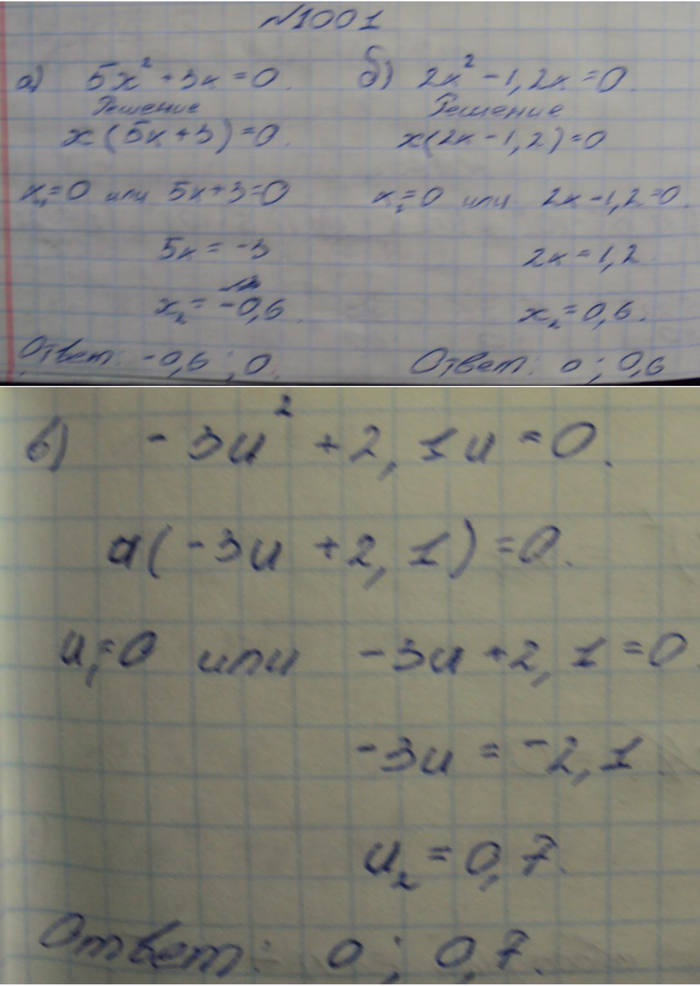 №1001
а) 5x² + 3x = 0.
Решение
x(5x+3)=0.
x₁=0 или 5x+3=0
5x = -3
x₂ = -0,6.
Ответ: -0,6; 0.
б) 2x² - 1,2x = 0.
Решение
x(2x-1,2)=0
x₁=0 или 2x-1,2=0.
2x=1,2
x₂=0,6.
Ответ: 0; 0,6
в) -3u² + 2,1u = 0.
u(-3u + 2,1) = 0.
u₁=0 или -3u + 2,1 = 0
-3u = -2,1.
u₂ = 0,7.
Ответ: 0; 0,7.